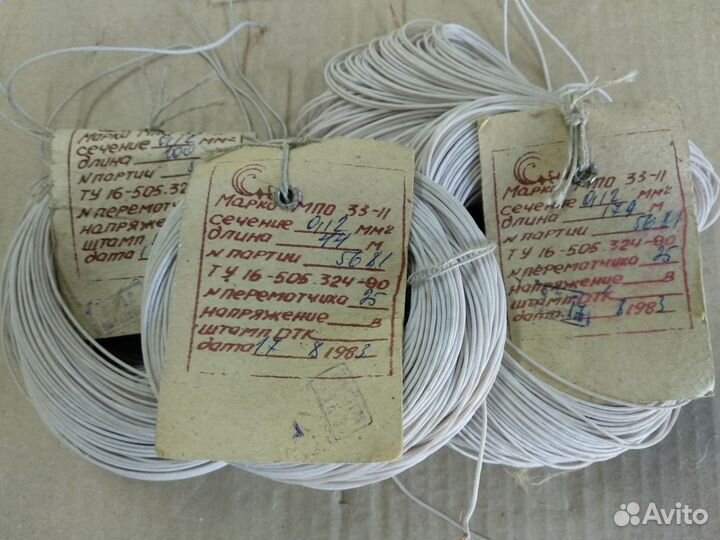 Марка
сечение 0,12 мм²
длина 100
№ партии
ТУ 16-505.324
№ перемотч
напряжение
штамп
дата
Марка МПО 33-11
сечение 0,12 мм²
длина 44 м
№ партии 5681
ТУ 16-505.324-80
№ перемотчика 25
напряжение в
штамп ОТК
дата 17 8 1983
Марка МПО 33-11
сечение 0,12 мм²
длина 179 м
№ партии 5681
ТУ 16-505.324-80
№ перемотчика 25
напряжение в
штамп ОТК
дата 17 8 1983
Avito